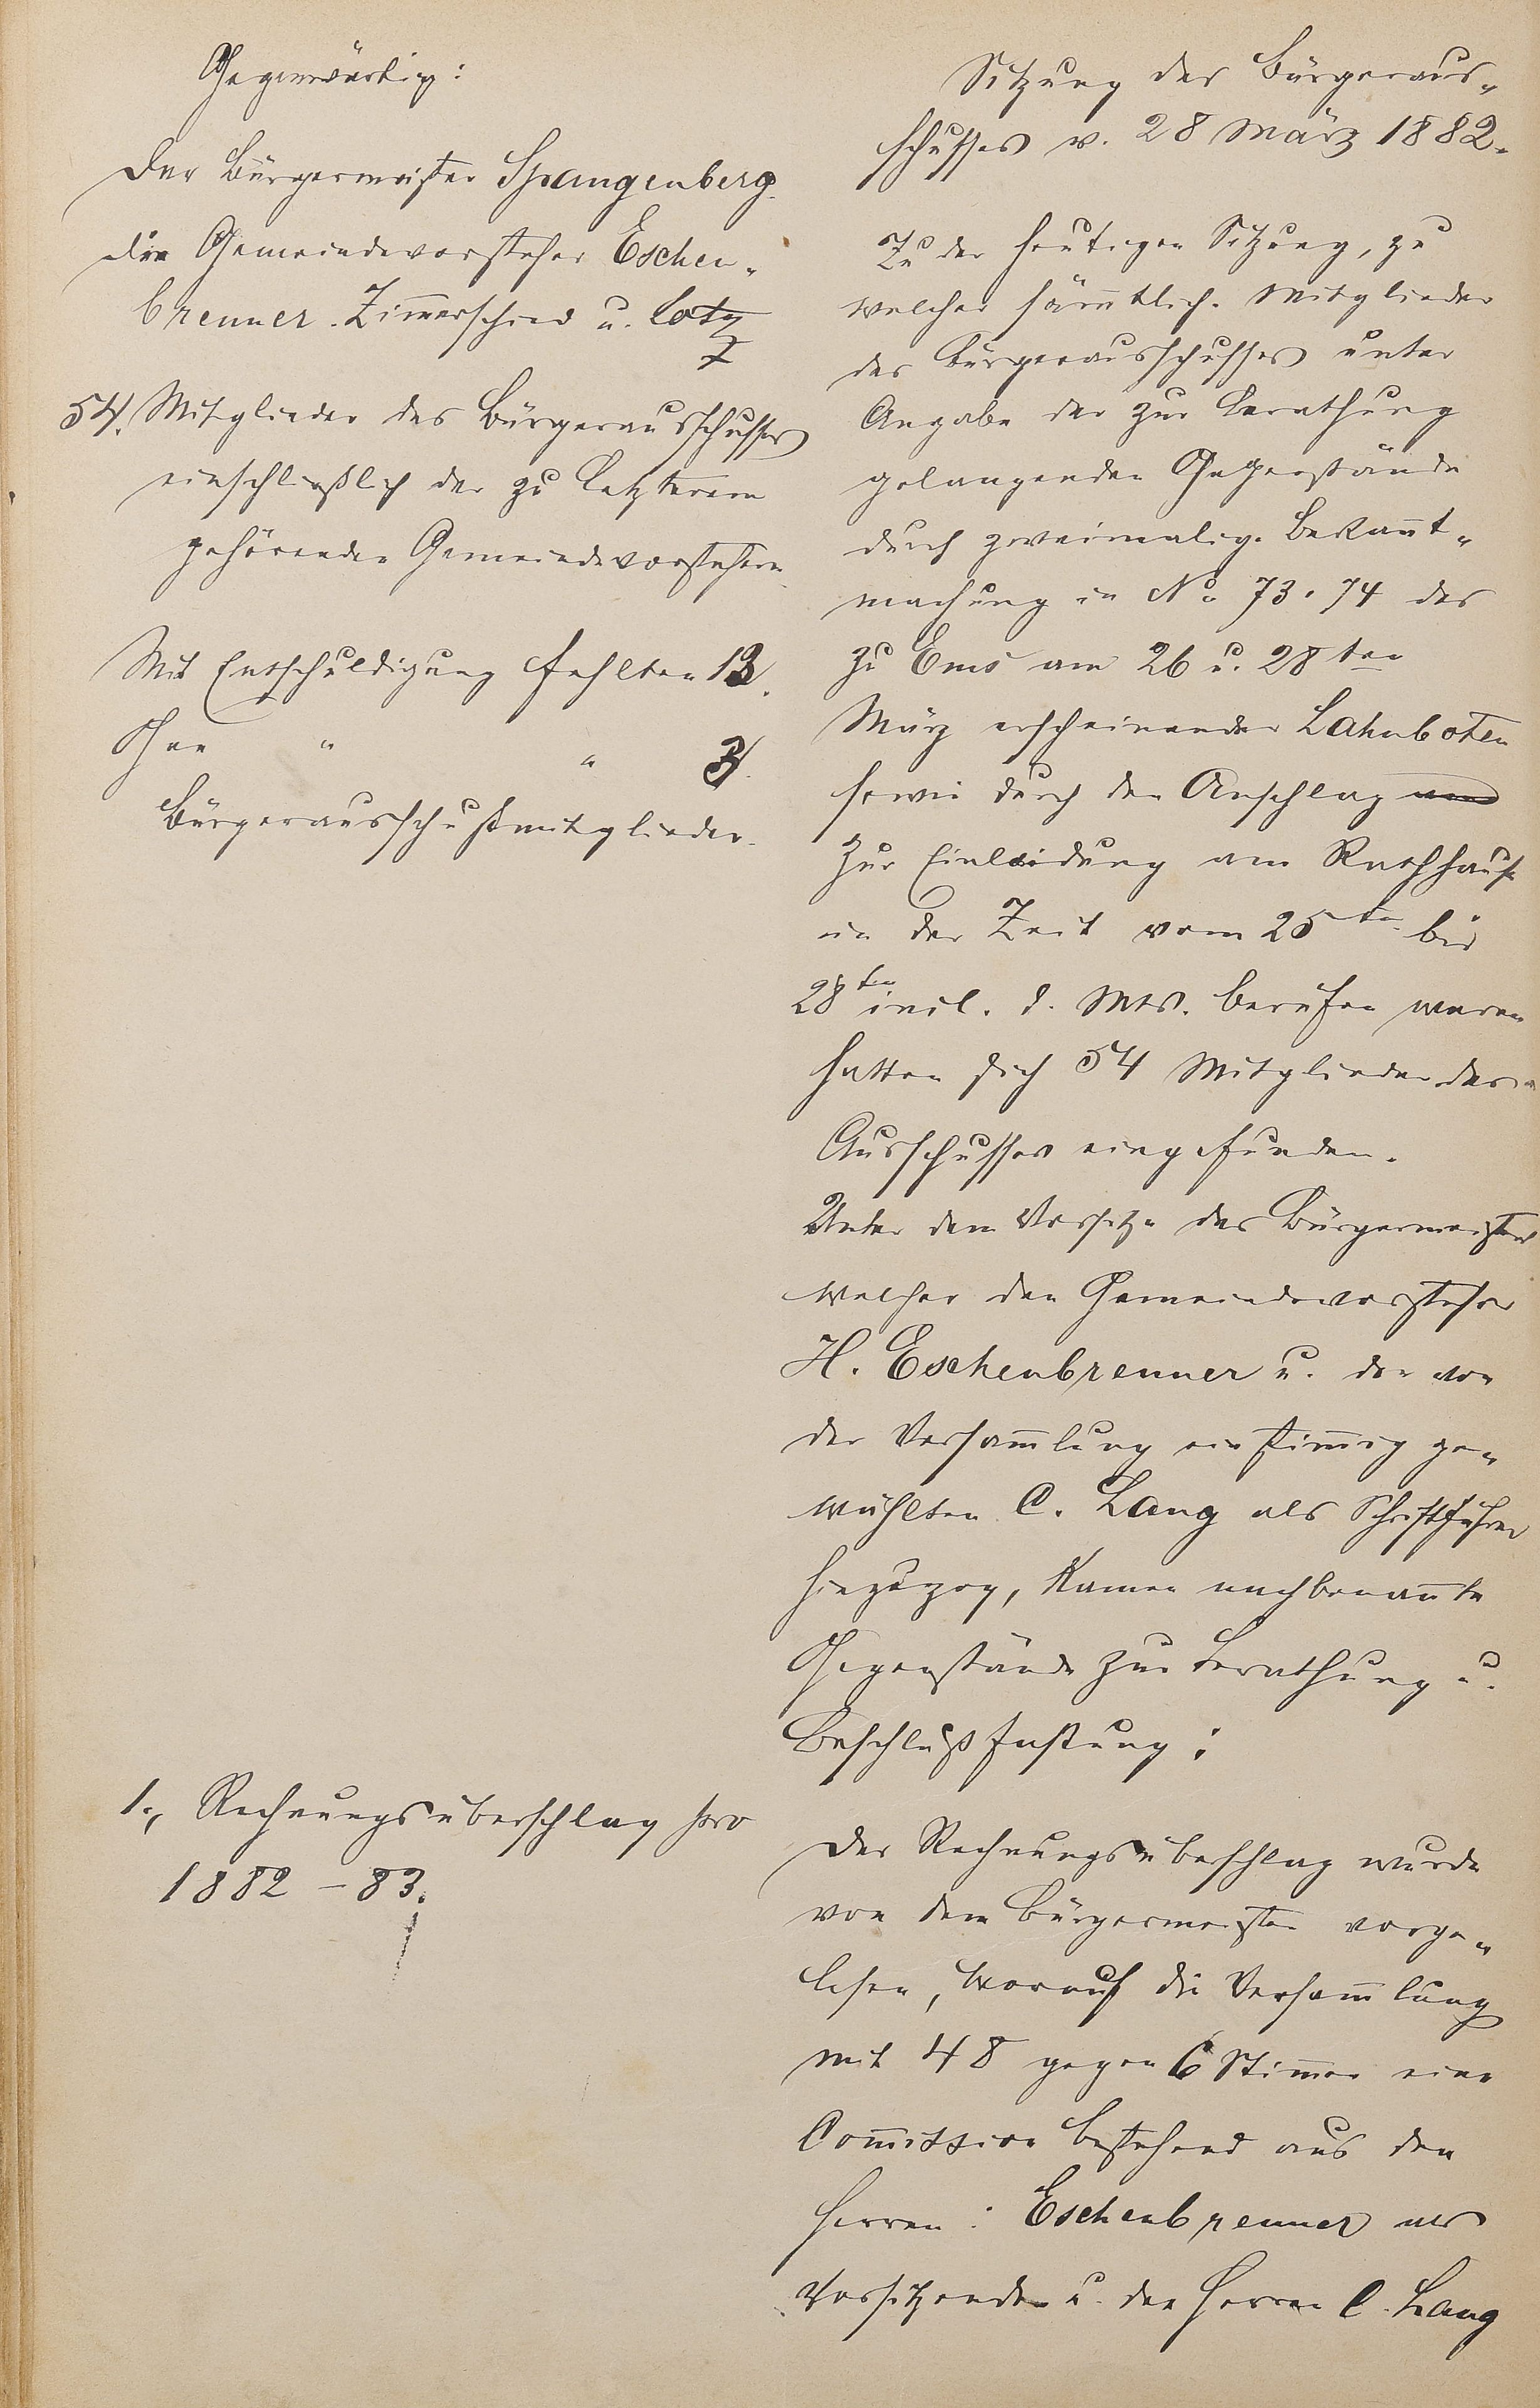 Gegenwärtig:
Der Bürgermeister Spangenberg.
die Gemeindevorsteher Eschen„
brenner. Zim̄erschied u. Lotz
54. Mitglieder des Bürgerausschusses
einschließlich der zu Letzterem
gehörenden Gemeindevorstehern.
Mit Entschuldigung fehlten 13.
Ohne " " 3.
Bürgerausschußmitglieder.
1., Rechnungsüberschlag pro
1882 – 83.
Sitzung des Bürgeraus„
schusses v. 28 März 1882.
Zu der heutigen Sitzung, zu
welcher säm̄tlich. Mitglieder
des Bürgerausschusses unter
Angabe der zur Berathung
gelangenden Gegenstände
durch zweimalig. Bekan̄t„
machung in No. 73. 74 des
zu Ems am 26 u. 28ten
März erscheinenden Lahnboten
sowie durch den Anschlag
zur Einladung am Rathhause
in der Zeit vom 25ten bis
28ten incl. d. Mts. berufen waren
hatten sich 54 Mitglieder des
Ausschusses eingefunden.
Unter dem Vorsitze des Bürgermeisters
welcher den Gemeindevorsteher
H. Eschenbrenner u. den von
der Versam̄lung einstim̄ig ge„
wählten C. Lang als Schriftführer
hinzuzog, kamen nachbenan̄te
Gegenstände zur Berathung u.
Beschlußfassung:
Der Rechnungsüberschlag wurde
von dem Bürgermeister vorge„
lesen, worauf die Versam̄lung
mit 48 gegen 6 Stim̄en eine
Com̄ission bestehend aus den
Herren: Eschenbrenner als
Vorsitzenden u. den Herren C. Lang